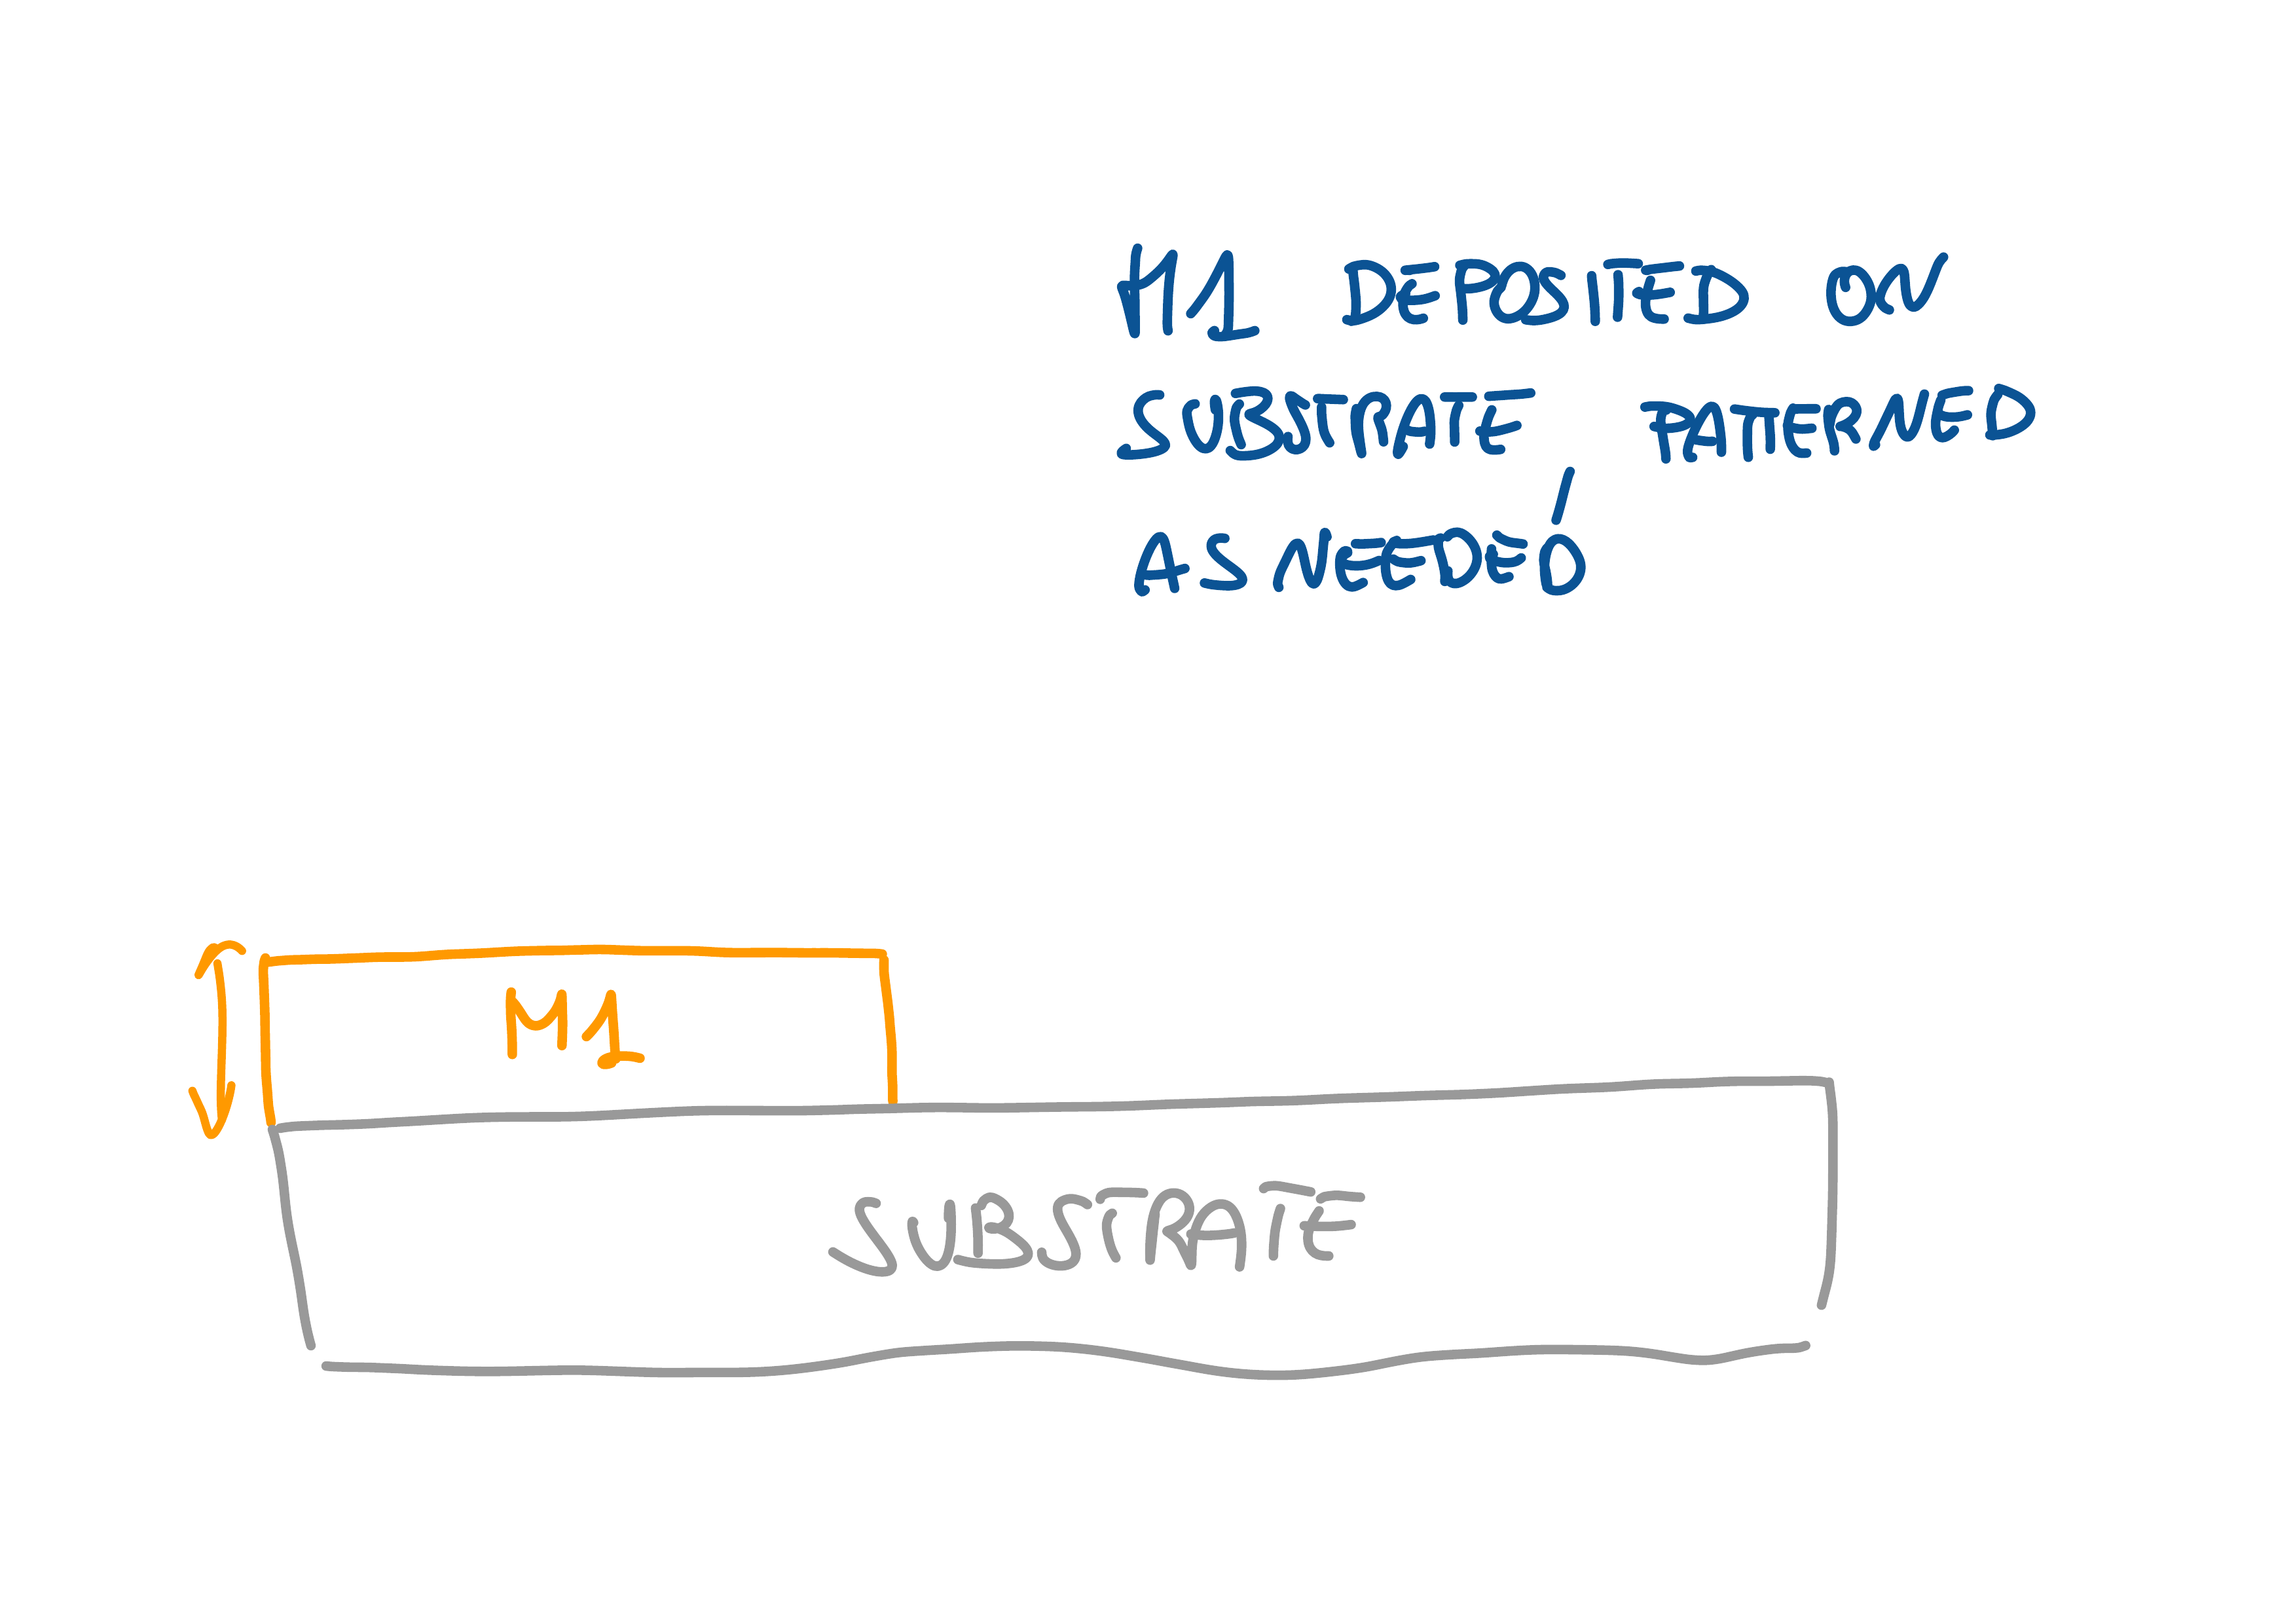 M1 DEPOSITED ON
SUBSTRATE PATTERNED
AS NEEDED
M1
SUBSTRATE